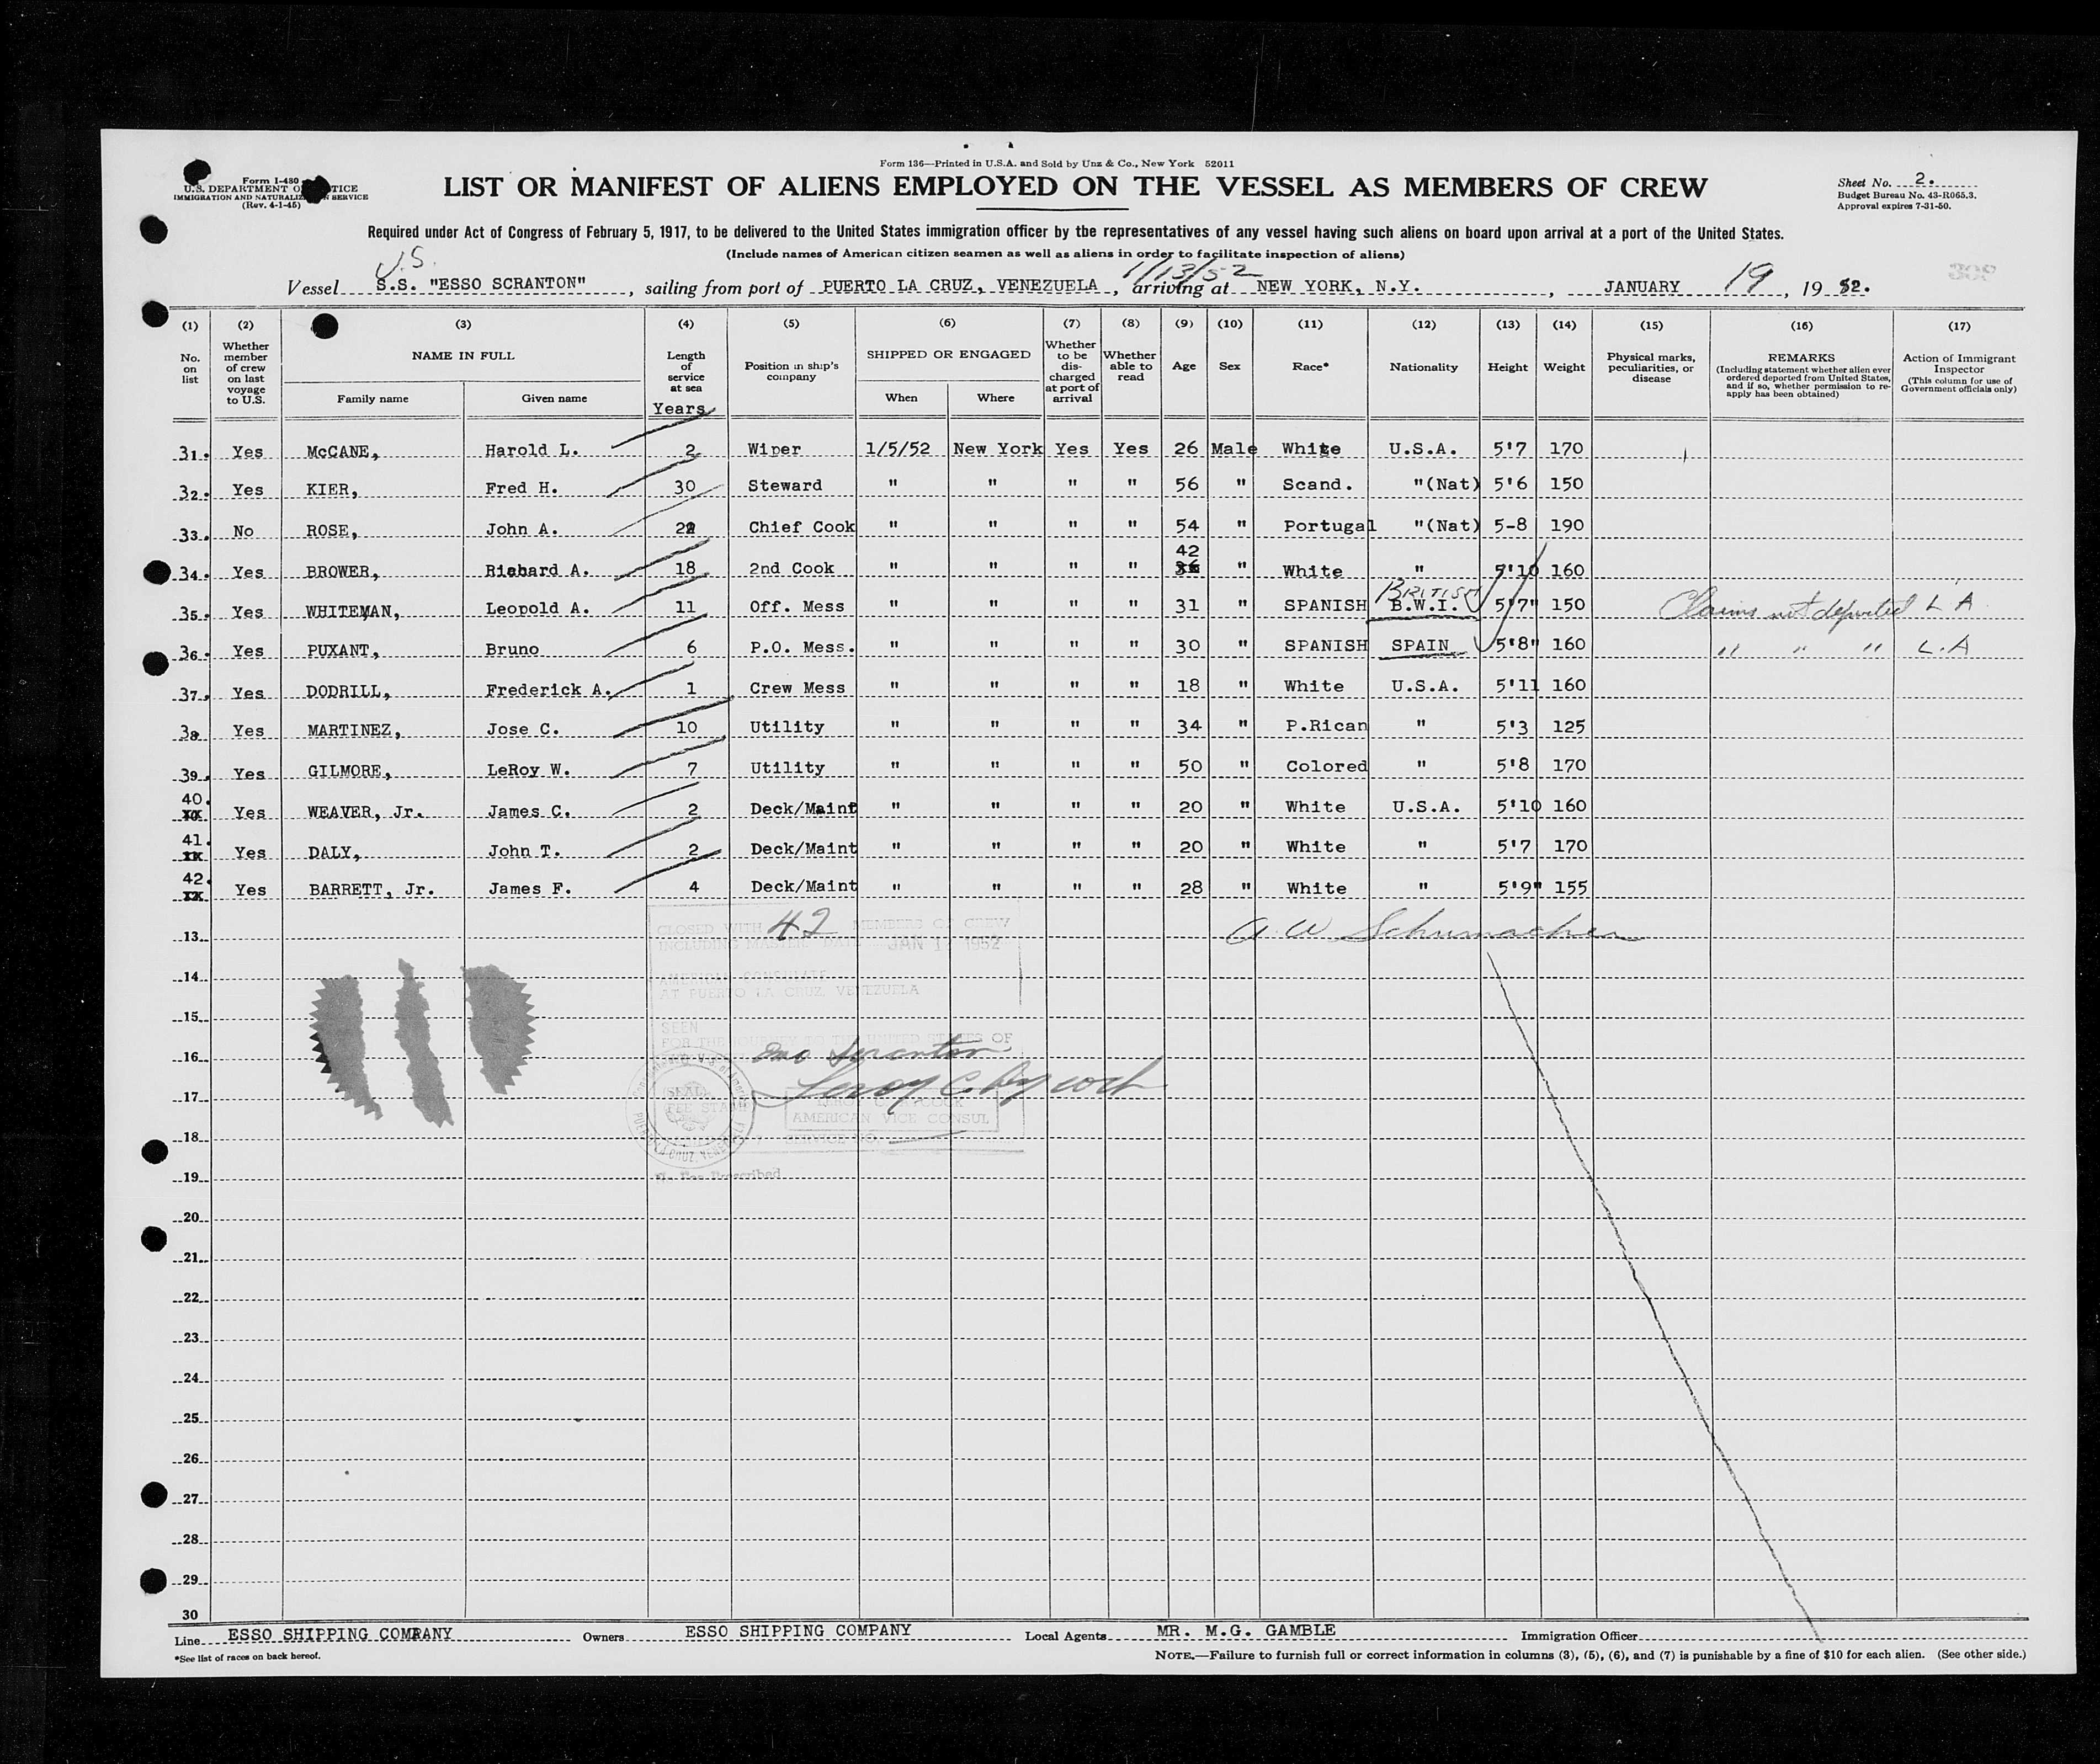 Form 136—Printed in U.S.A. and Sold by Unz & Co., New York 52011
Form I-480
U.S. DEPARTMENT OF JUSTICE
IMMIGRATION AND NATURALIZATION SERVICE
(Rev. 4-1-45)
LIST OR MANIFEST OF ALIENS EMPLOYED ON THE VESSEL AS MEMBERS OF CREW
Sheet No. 2.
Budget Bureau No. 43-R065.3.
Approval expires 7-31-50.
Required under Act of Congress of February 5, 1917, to be delivered to the United States immigration officer by the representatives of any vessel having such aliens on board upon arrival at a port of the United States.
(Include names of American citizen seamen as well as aliens in order to facilitate inspection of aliens)
U.S. 1/13/52
Vessel S.S. "ESSO SCRANTON", sailing from port of PUERTO LA CRUZ, VENEZUELA, arriving at NEW YORK, N.Y., JANUARY 19, 1952.
309
(1) (2) (3) (4) (5) (6) (7) (8) (9) (10) (11) (12) (13) (14) (15) (16) (17)
No. on list
Whether member of crew on last voyage to U.S.
NAME IN FULL
Family name Given name
Length of service at sea
Years
Position in ship's company
SHIPPED OR ENGAGED
When Where
Whether to be discharged at port of arrival
Whether able to read
Age
Sex
Race*
Nationality
Height
Weight
Physical marks, peculiarities, or disease
REMARKS
(Including statement whether alien ever ordered deported from United States, and if so, whether permission to re-apply has been obtained)
Action of Immigrant Inspector
(This column for use of Government officials only)
31. Yes McCANE, Harold L. 2 Wiper 1/5/52 New York Yes Yes 26 Male White U.S.A. 5'7 170
32. Yes KIER, Fred H. 30 Steward " " " " 56 " Scand. "(Nat) 5'6 150
33. No ROSE, John A. 22 Chief Cook " " " " 54 " Portugal "(Nat) 5-8 190
34. Yes BROWER, Richard A. 18 2nd Cook " " " " 42 " White " 5'10 160
35. Yes WHITEMAN, Leopold A. 11 Off. Mess " " " " 31 " SPANISH BRITISH B.W.I. 5'7" 150 Claims not deported L A
36. Yes PUXANT, Bruno 6 P.O. Mess. " " " " 30 " SPANISH SPAIN 5'8" 160 " " " L.A
37. Yes DODRILL, Frederick A. 1 Crew Mess " " " " 18 " White U.S.A. 5'11 160
38. Yes MARTINEZ, Jose C. 10 Utility " " " " 34 " P.Rican " 5'3 125
39. Yes GILMORE, LeRoy W. 7 Utility " " " " 50 " Colored " 5'8 170
40. Yes WEAVER, Jr. James C. 2 Deck/Maint " " " " 20 " White U.S.A. 5'10 160
41. Yes DALY, John T. 2 Deck/Maint " " " " 20 " White " 5'7 170
42. Yes BARRETT, Jr. James F. 4 Deck/Maint " " " " 28 " White " 5'9" 155
CLOSED WITH 42 MEMBERS OF CREW
INCLUDING MASTER. DATE JAN 1 1952
A W Schumacher
AMERICAN CONSULATE
AT PUERTO LA CRUZ, VENEZUELA
SEEN
FOR THE JOURNEY TO THE UNITED STATES OF
Esso Scranton
(SEAL)
FEE STAMP
PUERTO LA CRUZ, VENEZUELA
AMERICAN VICE CONSUL
SERVICE NO.
No Fee Prescribed
13
14
15
16
17
18
19
20
21
22
23
24
25
26
27
28
29
30
Line ESSO SHIPPING COMPANY Owners ESSO SHIPPING COMPANY Local Agents MR. M.G. GAMBLE Immigration Officer
*See list of races on back hereof.
NOTE.—Failure to furnish full or correct information in columns (3), (5), (6), and (7) is punishable by a fine of $10 for each alien. (See other side.)